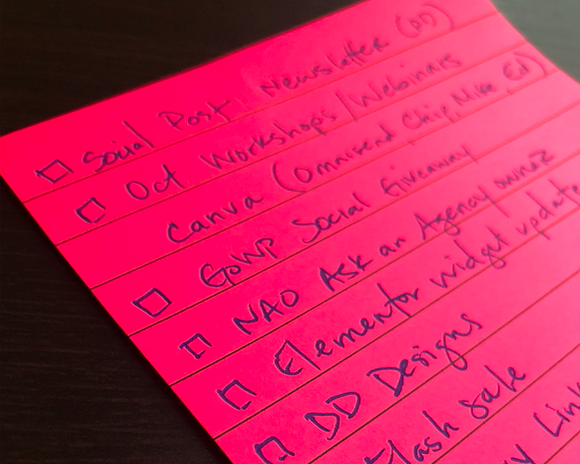 Social Post: Newsletter (DD)
Oct Workshops/Webinars
Canva (Omnisend Chip, Mike, Ed)
GoWP Social Giveaway
NAO Ask an Agency owner
Elementor widget update
DD Designs
flash sale